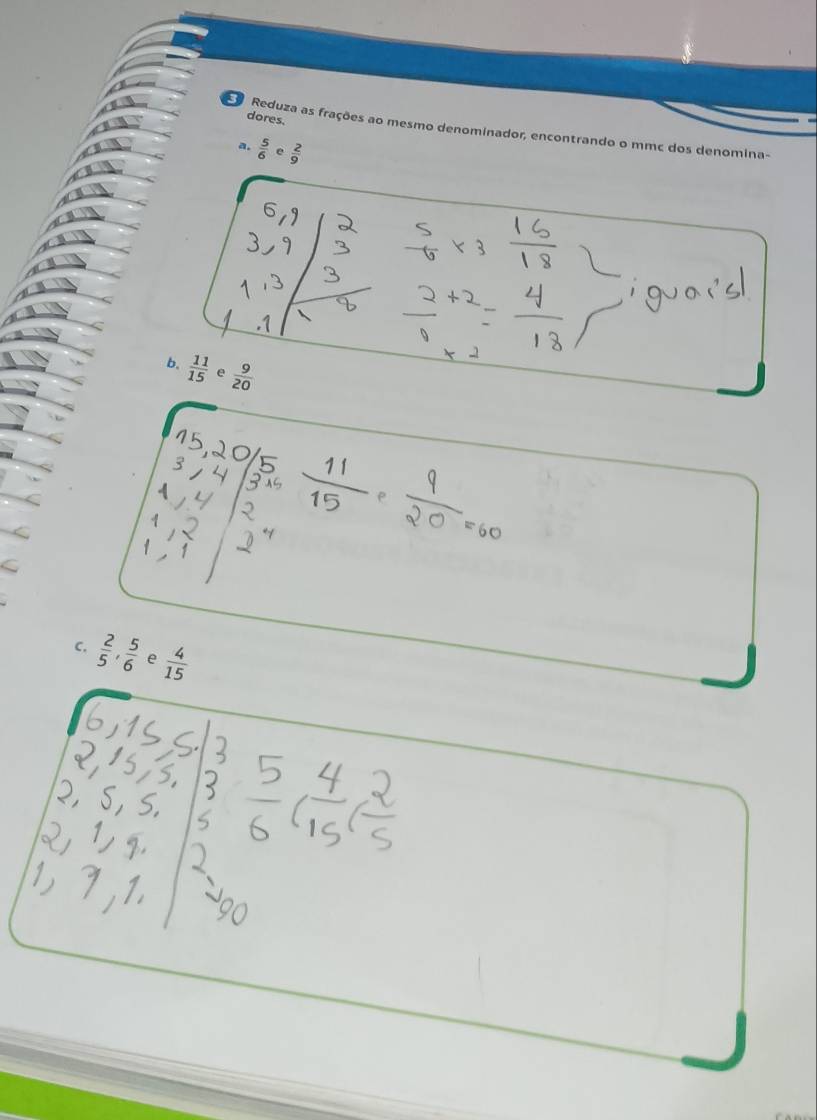 3 Reduza as frações ao mesmo denominador, encontrando o mmc dos denomina-
dores.
a. 5/6 e 2/9
6,9 | 2
3,9 | 3
1,3 | 3
1,1 | 18
5/6 × 3 15/18
2/9 +2 ×2 = 4/18
iguais!
b. 11/15 e 9/20
15,20 | 5
3,4 | 3 15
1,4 | 2
1,2 | 2 4
1,1
11/15 e 9/20 = 60
c. 2/5, 5/6 e 4/15
6,15,5. | 3
2,15,5. | 3
2,5,5. | 5
2,1,1. | 2 → 90
1,1,1.
5/6 ( 4/15 ( 2/5